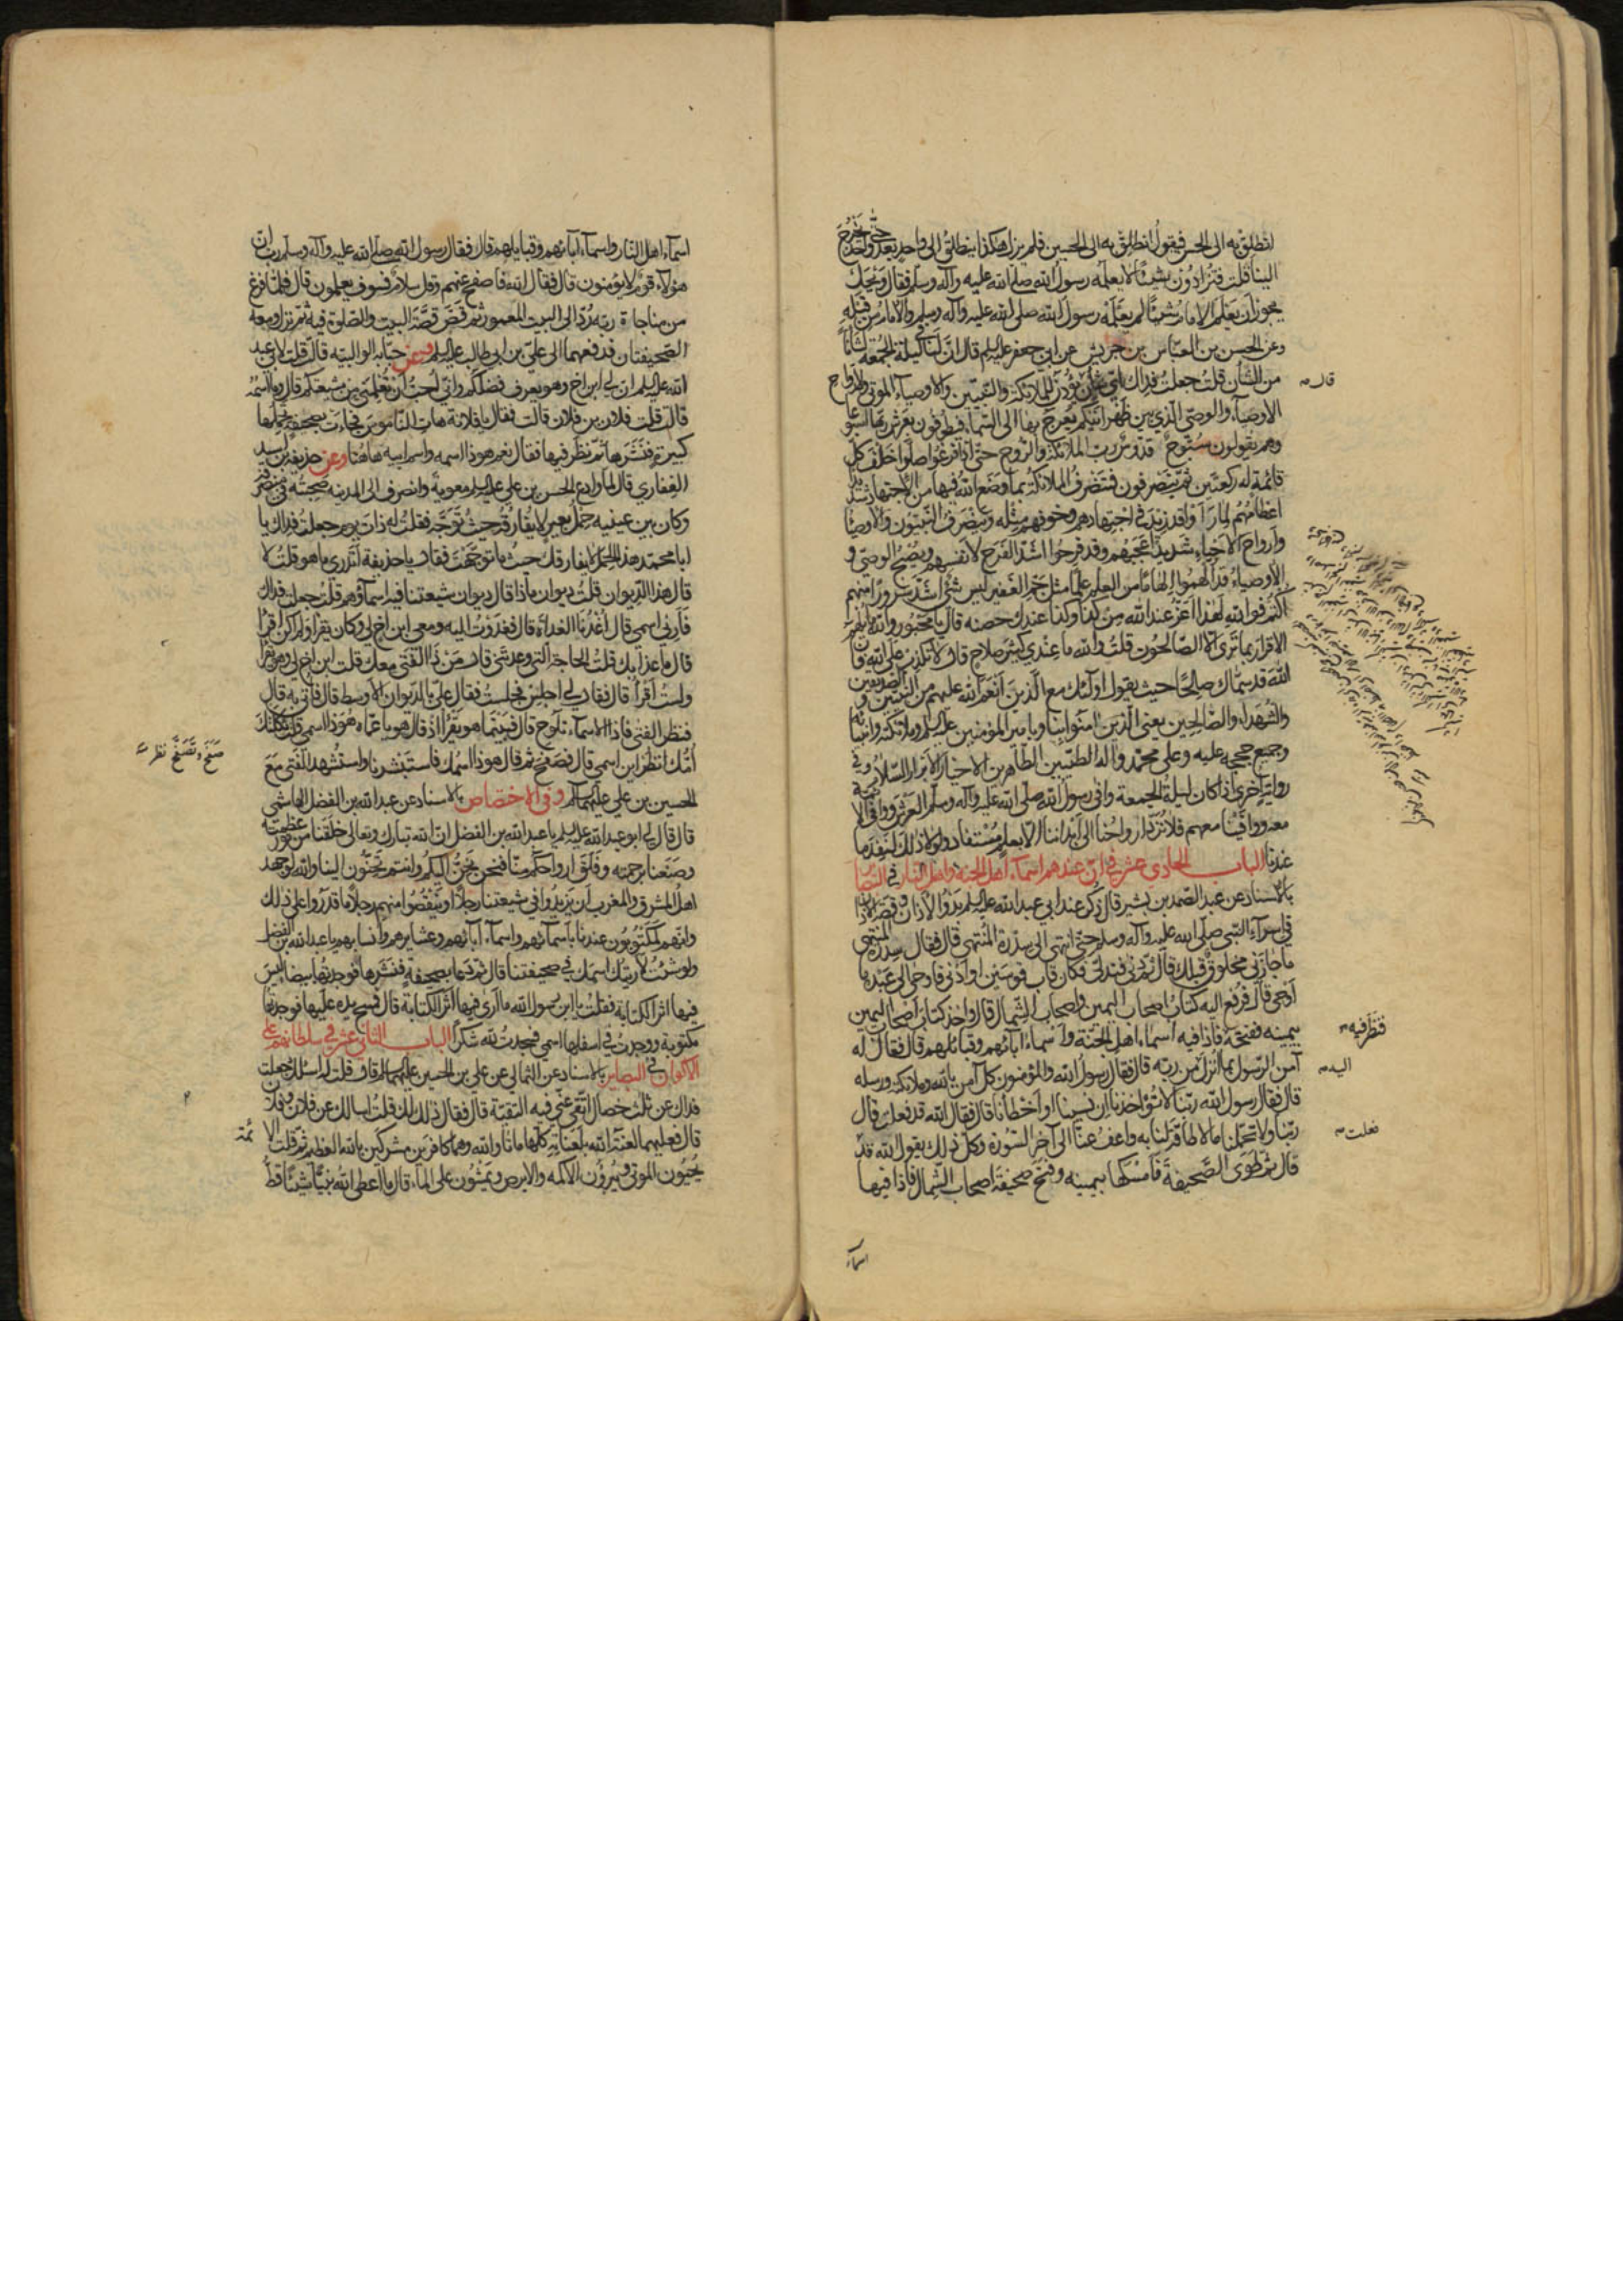 انطلق به الى الحسن فيقول انطلق به الى الحسين فلم يزل هكذا ينطلق الى واحد بعد واحد حتى يخرج
الينا قلت فتزادون شيئا لا يعلمه رسول الله صلى الله عليه وآله وسلم فقال ويحك
يجوز ان يعلم الامام شيئا لم يعلمه رسول الله صلى الله عليه وآله وسلم والامام من قبله
وعن الحسن بن العباس بن حريش عن ابي جعفر عليه السلم قال ان لنا في ليلة الجمعة لشانا
من الشان قلت جعلت فداك اي شان قال يؤذن للملائكة والنبيين والاوصياء الموتى ولارواح
الاوصياء والوصي الذي بين ظهرانيكم يعرج بها الى السماء فيطوفون بعرش ربها اسبوعا
وهم يقولون سبوح قدوس رب الملائكة والروح حتى اذا فرغوا صلوا خلف كل
قائمة له ركعتين ثم ينصرفون فتنصرف الملائكة بما وضع الله فيها من الاجتهاد شديد
اعظامهم لما راوا وقد زيد في اجتهادهم وخوفهم مثله وينصرف النبيون والاوصياء
وارواح الاحياء شديدا عجبهم وقد فرحوا اشد الفرح لانفسهم ويصبح الوصي و
الاوصياء قد الهموا الهاما من العلم علما مثل جم الغفير ليس شيء اشد سرورا منهم
اكتم فوالله لهذا اعز عند الله من كذا وكذا عندك حصنه قال يا محبور والله ما يلهم
الاقرار بما ترى الا الصالحون قلت والله ما عندي كثير صلاح قال لا تكذب على الله فان
الله قد سماك صالحا حيث يقول اولئك مع الذين انعم الله عليهم من النبيين والصديقين
والشهداء والصالحين يعني الذين امنوا بنا وبامير المؤمنين عليه السلم وملائكته وانبيائه
وجميع حججه عليه وعلى محمد وآله الطيبين الطاهرين الاخيار الابرار السلام وفي
رواية اخرى اذا كان ليلة الجمعة وافى رسول الله صلى الله عليه وآله وسلم العرش ووافى الائمة
معه ووافينا معهم فلا ترد ارواحنا الى ابداننا الا بعلم مستفاد ولولا ذلك لنفد ما
عندنا الباب الحادي عشر في ان عندهم اسماء اهل الجنة واهل النار في البصاير
بالاسناد عن عبد الصمد بن بشير قال ذكر عند ابي عبد الله عليه السلم بدو الاذان وقصة الاذان
في اسراء النبي صلى الله عليه وآله وسلم حتى انتهى الى سدرة المنتهى قال فقال سدرة المنتهى
ما جازني مخلوق قبلك قال ثم دنى فتدلى فكان قاب قوسين او ادنى فاوحى الى عبده ما
اوحى قال فرفع اليه كتاب اصحاب اليمين واصحاب الشمال قال واخذ كتاب اصحاب اليمين
بيمينه ففتحه فاذا فيه اسماء اهل الجنة واسماء آبائهم وقبائلهم قال فقال له
آمن الرسول بما انزل من ربه قال فقال رسول الله والمؤمنون كل آمن بالله وملائكته ورسله
قال فقال رسول الله ربنا لا تؤاخذنا ان نسينا او اخطانا قال فقال الله قد فعلت قال
ربنا ولا تحملنا ما لا طاقة لنا به واعف عنا الى آخر السورة وكل ذلك يقول الله قد
قال ثم طوى الصحيفة فامسكها بيمينه وفتح صحيفة اصحاب الشمال فاذا فيها
قال
فنظر فيه
اليه
فعلت
اسماء
اسماء اهل النار واسماء آبائهم وقبايلهم قال فقال رسول الله صلى الله عليه وآله وسلم رب ان
هؤلاء قوم لا يؤمنون قال فقال الله فاصفح عنهم وقل سلام فسوف يعلمون قال فلما فرغ
من مناجاة ربه رد الى البيت المعمور ثم قص قصة البيت والصلوة فيه ثم نزل ومعه
الصحيفتان فدفعهما الى علي بن ابي طالب عليه السلم وعن حبابة الوالبية قالت قلت لابي عبد
الله عليه السلم ان لي ابن اخ وهو يعرف فضلكم واني احب ان تعلمني من شيعتكم قال وما اسمه
قالت قلت فلان بن فلان قالت فقال يا فلانة هات الناموس فجاءت بصحيفة تحملها
كبيرة فنشرها ثم نظر فيها فقال نعم هوذا اسمه واسم ابيه هاهنا وعن حذيفة بن اسيد
الغفاري قال لما وادع الحسن بن علي عليه السلم معوية وانصرف الى المدينة صحبته في منصرفه
وكان بين عينيه حمل بعير لا يفارقه حيث توجه فقلت له ذات يوم جعلت فداك يا
ابا محمد هذا الحمل لا يفارقك حيث ما توجهت فقال يا حذيفة اتدري ما هو قلت لا
قال هذا الديوان قلت ديوان ماذا قال ديوان شيعتنا فيه اسماؤهم قلت جعلت فداك
فارني اسمي قال اغد بالغداة قال فغدوت اليه ومعي ابن اخ لي وكان يقرا ولم اكن اقرا
قال ما غدا بك قلت الحاجة التي وعدتني قال من ذا الفتى معك قلت ابن اخ لي وهو يقرا
ولست اقرا قال فقال لي اجلس فجلست فقال علي بالديوان الاوسط قال فاتي به قال
فنظر الفتى فاذا الاسماء تلوح قال فبينما هو يقرا اذ قال هو يا عماه هوذا اسمي قلت ثكلتك
امك انظر اين اسمي قال فصفح ثم قال هوذا اسمك فاستبشرنا واستشهد الفتى مع
الحسين بن علي عليهما السلم وفي الاختصاص بالاسناد عن عبد الله بن الفضل الهاشمي
قال قال لي ابو عبد الله عليه السلم يا عبد الله بن الفضل ان الله تبارك وتعالى خلقنا من نور عظمته
وصنعنا برحمته وخلق ارواحكم منا فنحن نحن اليكم وانتم تحنون الينا والله لو جهد
اهل المشرق والمغرب ان يزيدوا في شيعتنا رجلا او ينقصوا منهم رجلا ما قدروا على ذلك
وانهم لمكتوبون عندنا باسمائهم واسماء آبائهم وعشايرهم وانسابهم يا عبد الله بن الفضل
ولو شئت لاريتك اسمك في صحيفتنا قال ثم دعا بصحيفة فنشرها فوجدتها بيضاء ليس
فيها اثر الكتابة فقلت يا ابن رسول الله ما ارى فيها اثر الكتابة قال فمسح يده عليها فوجدتها
مكتوبة ووجدت في اسفلها اسمي فسجدت لله شكرا الباب الثاني عشر في سلطانهم على
الاكوان في البصاير بالاسناد عن الثمالي عن علي بن الحسين عليهما السلم قال قلت له اسئلك جعلت
فداك عن ثلث خصال انفي عني فيه التقية قال فقال ذلك لك قلت اسالك عن فلان وفلان
قال فعليهما لعنة الله بلعناته كلها ماتا والله وهما كافرين مشركين بالله العظيم ثم قلت الائمة
يحيون الموتى ويبرؤن الاكمه والابرص ويمشون على الماء قال ما اعطى الله نبيا شيئا قط